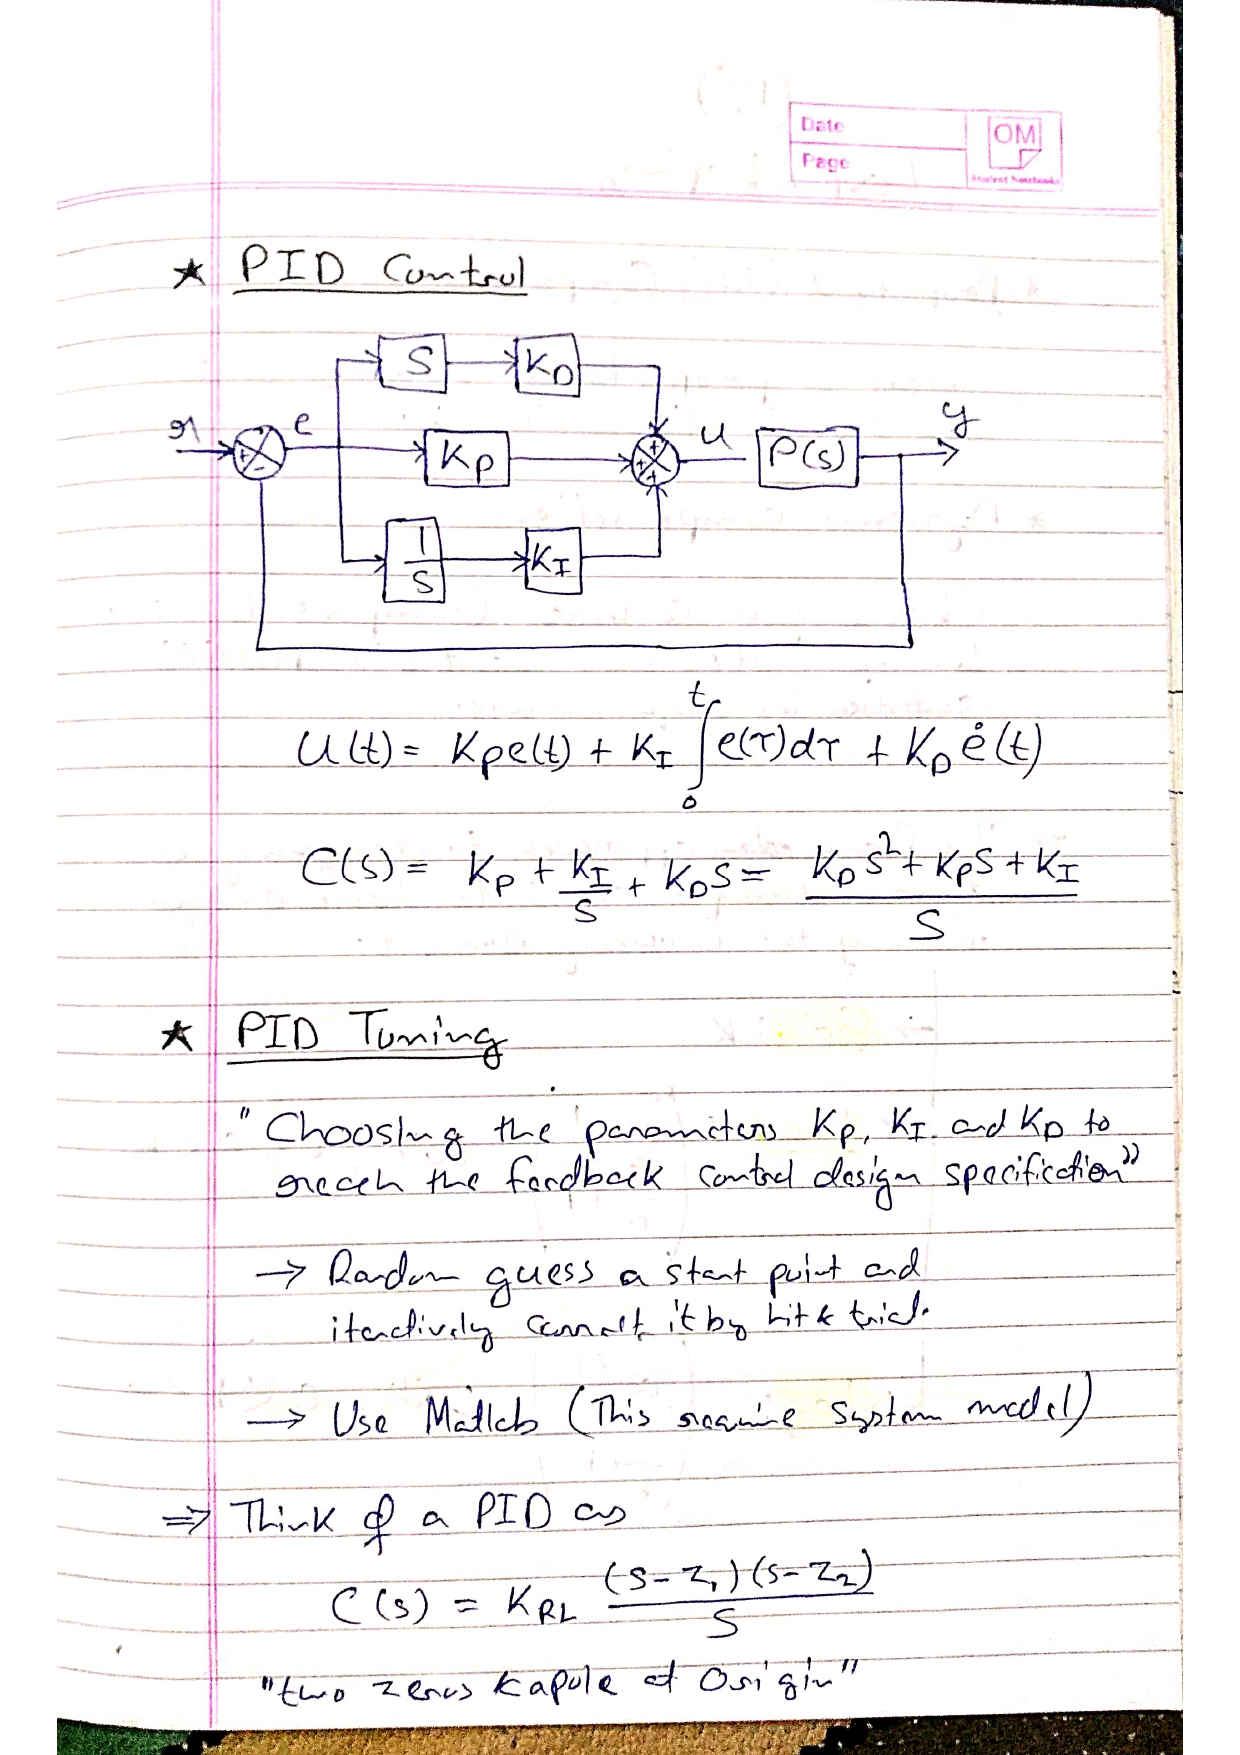 Date
Page
OM
Student Notebooks
★ PID Control
S
K_D
r
e
K_P
u
P(s)
y
1/S
K_I
U(t) = K_P e(t) + K_I ∫₀ᵗ e(τ)dτ + K_D ė(t)
C(s) = K_P + K_I/S + K_D S = (K_D S² + K_P S + K_I)/S
★ PID Tuning
"Choosing the parameters K_P, K_I and K_D to
reach the feedback control design specification"
→ Random guess a start point and
iteratively it by hit & trial.
→ Use Matlab (This require System model)
⇒ Think of a PID as
C(s) = K_RL (S-Z₁)(S-Z₂)/S
"two zeros & a pole at Origin"